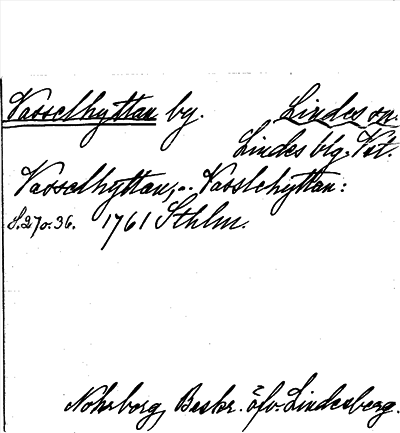 Vasselhyttan by. Lindes sn.
Lindes blg. Vst.
Vasselhyttan, o. Vasslehyttan:
S. 27 o. 36. 1761 Sthlm.
Nohrborg, Beskr. öfv. Lindesberg.